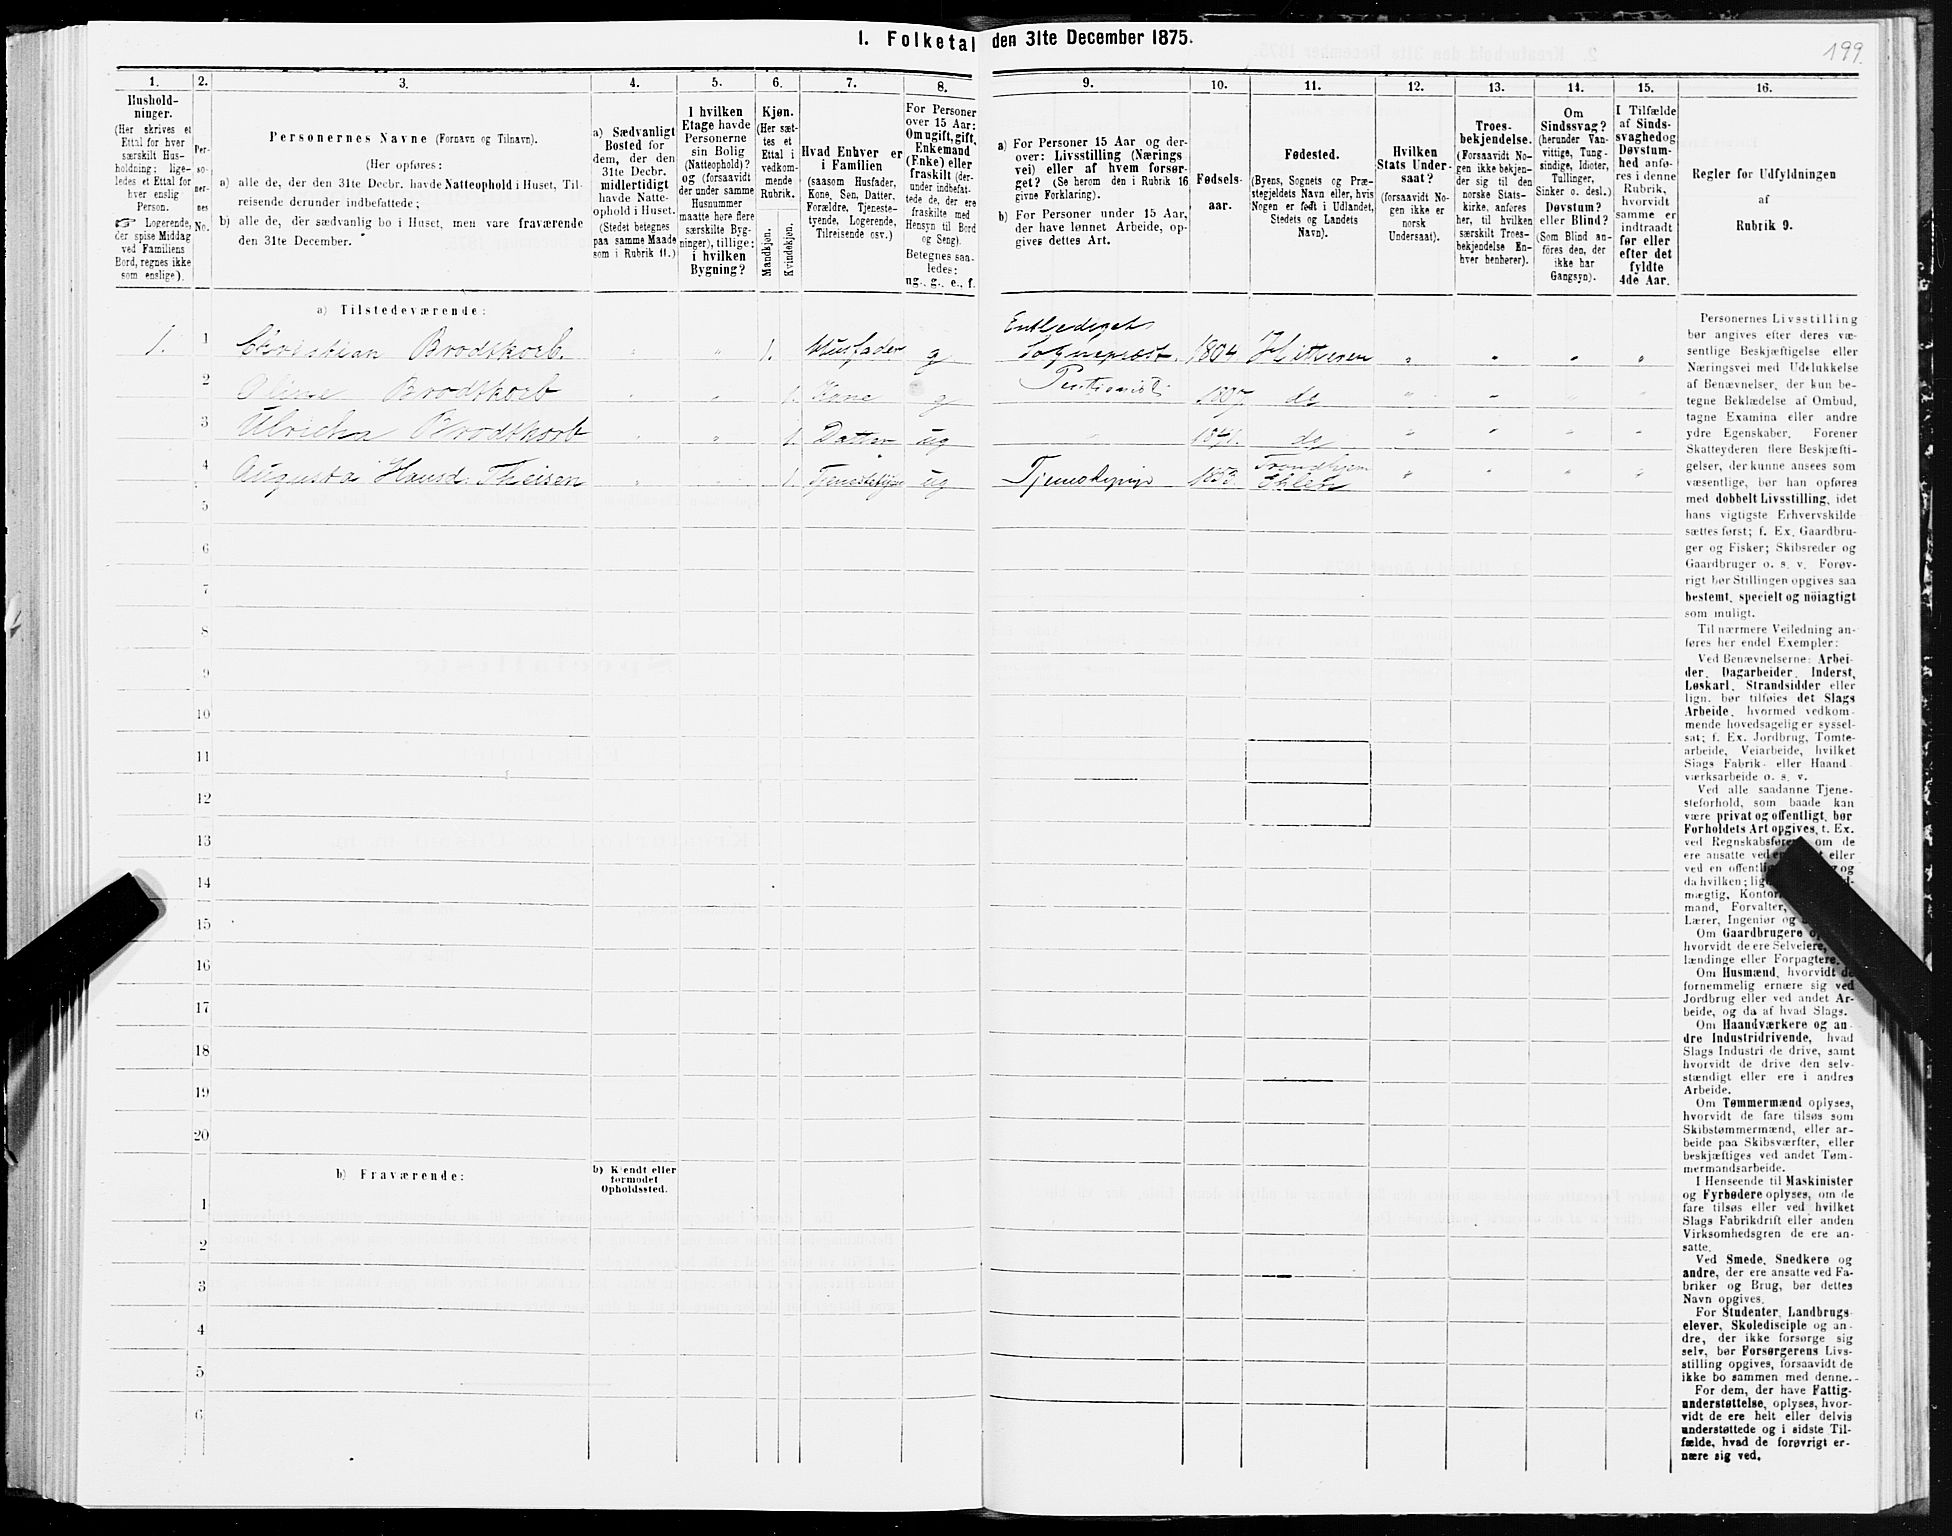 I. Folketal den 31te December 1875.
199.
1.
Hushold-
ninger.
(Her skrives et
Ettal for hver
særskilt Hus-
holdning; lige-
ledes et Ettal for
hver enslig
Person.
☞ Logerende,
der spise Middag
ved Familiens
Bord, regnes ikke
som enslige).
2.
Per-
so-
ner-
nes
No.
3.
Personernes Navne (Fornavn og Tilnavn).
(Her opføres:
a) alle de, der den 31te Decbr. havde Natteophold i Huset, Til-
reisende derunder indbefattede;
b) alle de, der sædvanlig bo i Huset, men vare fraværende
den 31te December.
4.
a) Sædvanligt
Bosted for
dem, der den
31te Decbr.
midlertidigt
havde Natte-
ophold i Huset.
(Stedet betegnes
paa samme Maade
som i Rubrik 11.)
5.
I hvilken
Etage havde
Personerne
sin Bolig
(Natteophold)?
og (forsaavidt
der under samme
Husnummer
maatte høre flere
særskilte Byg-
ninger), tillige:
i hvilken
Bygning?
6.
Kjøn.
(Her sæt-
tes et
Ettal i
vedkom-
mende
Rubrik.
Mandkjøn.
Kvindekjøn.
7.
Hvad Enhver er
i Familien
(saasom Husfader,
Kone, Søn, Datter,
Forældre, Tjeneste-
tyende, Logerende,
Tilreisende osv.)
8.
For Personer
over 15 Aar:
Om ugift, gift,
Enkemand
(Enke) eller
fraskilt (der-
under indbefat-
tede de, der ere
fraskilte med
Hensyn til Bord
og Seng).
Betegnes saa-
ledes:
ug., g., e., f.
9.
a) For Personer 15 Aar og der-
over: Livsstilling (Nærings
vei) eller af hvem forsør-
get? (Se herom den i Rubrik 16
givne Forklaring).
b) For Personer under 15 Aar,
der have lønnet Arbeide, op-
gives dettes Art.
10.
Fødsels-
aar.
11.
Fødested.
(Byens, Sognets og Præ-
stegjeldets Navn eller, hvis
Nogen er født i Udlandet,
Stedets og Landets
Navn).
12.
Hvilken
Stats Under-
saat?
(forsaavidt No-
gen ikke er
norsk
Undersaat).
13.
Troes-
bekjendelse.
(Forsaavidt No-
gen ikke bekjen-
der sig til den
norske Stats-
kirke, anføres
her, til hvilken
særskilt Troes-
bekjendelse En-
hver henhører).
14.
Om
Sindssvag?
(herunder Van-
vittige, Tung-
sindige, Idioter,
Tullinger,
Sinker o. desl.)
Døvstum?
eller Blind?
(Som Blind an-
føres den, der
ikke har
Gangsyn).
15.
I Tilfælde
af Sinds-
svaghed og
Døvstum-
hed anfø-
res i denne
Rubrik,
hvorvidt
samme er
indtraadt
før eller
efter det
fyldte
4de Aar.
16.
Regler for Udfyldningen
af
Rubrik 9.
a) Tilstedeværende:
1. 1 Christian Brodtkorb. " " 1. Husfader g Entlediget Sogneprest. 1804. Hitteren " " " "
2 Oline Brodtkorb " " 1. Kone g Pentionist de " " " "
3 Ulricha Brodtkorb " " 1. Datter ug " de " " " "
4 Augusta Hansd. Theisen " " 1. ug 1853. Trondhjem " " " "
5
6
7
8
9
10
11
12
13
14
15
16
17
18
19
20
b) Fraværende:
b) Kjendt eller
formodet
Opholdssted.
1
2
3
4
5
6
Personernes Livsstilling
bør angives efter deres væ-
sentlige Beskjæftigelse eller
Næringsvei med Udelukkelse
af Benævnelser, der kun be-
tegne Beklædelse af Ombud,
tagne Examina eller andre
ydre Egenskaber. Forener
Skatteyderen flere Beskjæfti-
gelser, der kunne ansees som
væsentlige, bør han opføres
med dobbelt Livsstilling, idet
hans vigtigste Erhvervskilde
sættes først; f. Ex. Gaardbru-
ger og Fisker; Skibsreder og
Gaardbruger o. s. v. Forøv-
rigt bør Stillingen opgives saa
bestemt, specielt og nöiagtigt
som muligt.
Til nærmere Veiledning an-
føres her endel Exempler:
Ved Benævnelserne: Arbei-
der, Dagarbeider, Inderst,
Løskarl, Strandsidder eller
lign. bør tilføies det Slags
Arbeide, hvormed vedkom-
mende hovedsagelig er syssel-
sat; f. Ex. Jordbrug, Tomte-
arbeide, Veiarbeide, hvilket
Slags Fabrik- eller Haand-
værksarbeide o. s. v.
Ved alle saadanne Tjene-
steforhold, som baade kan
være privat og offentligt, bør
Forholdets Art opgives, t. Ex.
ved Regnskabsføre om de
ere ansatte ved eller
ved en offentl og
da hvilken;
mægtig, Kontor
mand, Forvalter,
Lærer, Ingeniør og
Om Gaardbrugere
hvorvidt de ere Selveiere,
lændinge eller Forpagtere.
Om Husmænd, hvorvidt de
fornemmelig ernære sig ved
Jordbrug eller ved andet Ar-
beide, og da af hvad Slags.
Om Haandværkere og an-
dre Industridrivende, hvad
Slags Industri de drive, samt
hvorvidt de drive den selv-
stændigt eller ere i andres
Arbeide.
Om Tømmermænd oplyses,
hvorvidt de fare tilsøs som
Skibstømmermænd, eller ar-
beide paa Skibsværfter, eller
beskjæftiges ved andet Tøm-
mermandsarbeide.
I Henseende til Maskinister
og Fyrbødere oplyses, om de
fare tilsøs eller ved hvilket
Slags Fabrikdrift eller anden
Virksomhedsgren de ere an-
satte.
Ved Smede, Snedkere og
andre, der ere ansatte ved Fa-
briker og Brug, bør dettes
Navn opgives.
For Studenter, Landbrugs-
elever, Skoledisciple og an-
dre, der ikke forsørge sig
selv, bør Forsørgerens Livs-
stilling opgives, forsaavidt de
ikke bo sammen med denne.
For dem, der have Fattig-
understøttelse, oplyses, hvor-
vidt de ere helt eller delvis
understøttede og i sidste Til-
fælde, hvad de forøvrigt er-
nære sig ved.